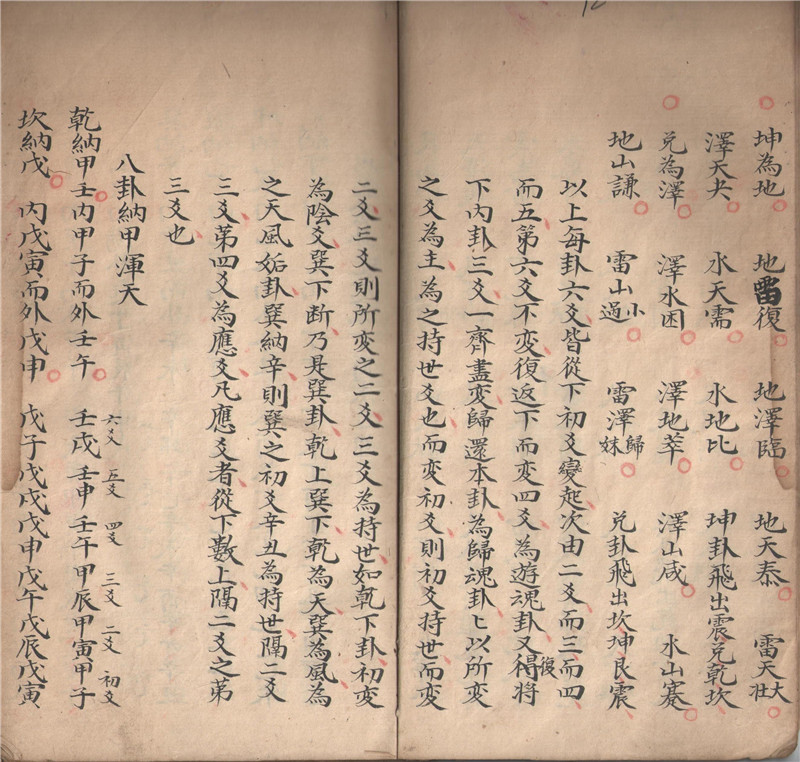 坤為地 地雷復 地澤臨 地天泰 雷天大壯
澤天夬 水天需 水地比 坤卦飛出震兌乾坎
兌為澤 澤水困 澤地萃 澤山咸 水山蹇
地山謙 雷山小過 雷澤歸妹 兌卦飛出坎坤艮震
以上每卦六爻皆從下初爻變起次由二爻而三而四
而五第六爻不变復返下而变四爻為遊魂卦又得復將
下內卦三爻一齊盡变歸還本卦為歸魂卦匕以所变
之爻為主為之持世爻也而变初爻則初爻持世而变
二爻三爻則所变之二爻三爻為持世如乹下卦初变
為陰爻巽下断乃是巽卦乹上巽下乹為天巽為風為
之天風姤卦巽納辛則巽之初爻辛丑為持世隔二爻
三爻第四爻為應爻凡應爻者從下數上隔二爻之第
三爻也
八卦納甲渾天
乾納甲壬內甲子而外壬午 六爻 五爻 四爻 三爻 二爻 初爻 壬戌壬申壬午甲辰甲寅甲子
坎納戊 內戊寅而外戊申 戊子戊戌戊申戊午戊辰戊寅